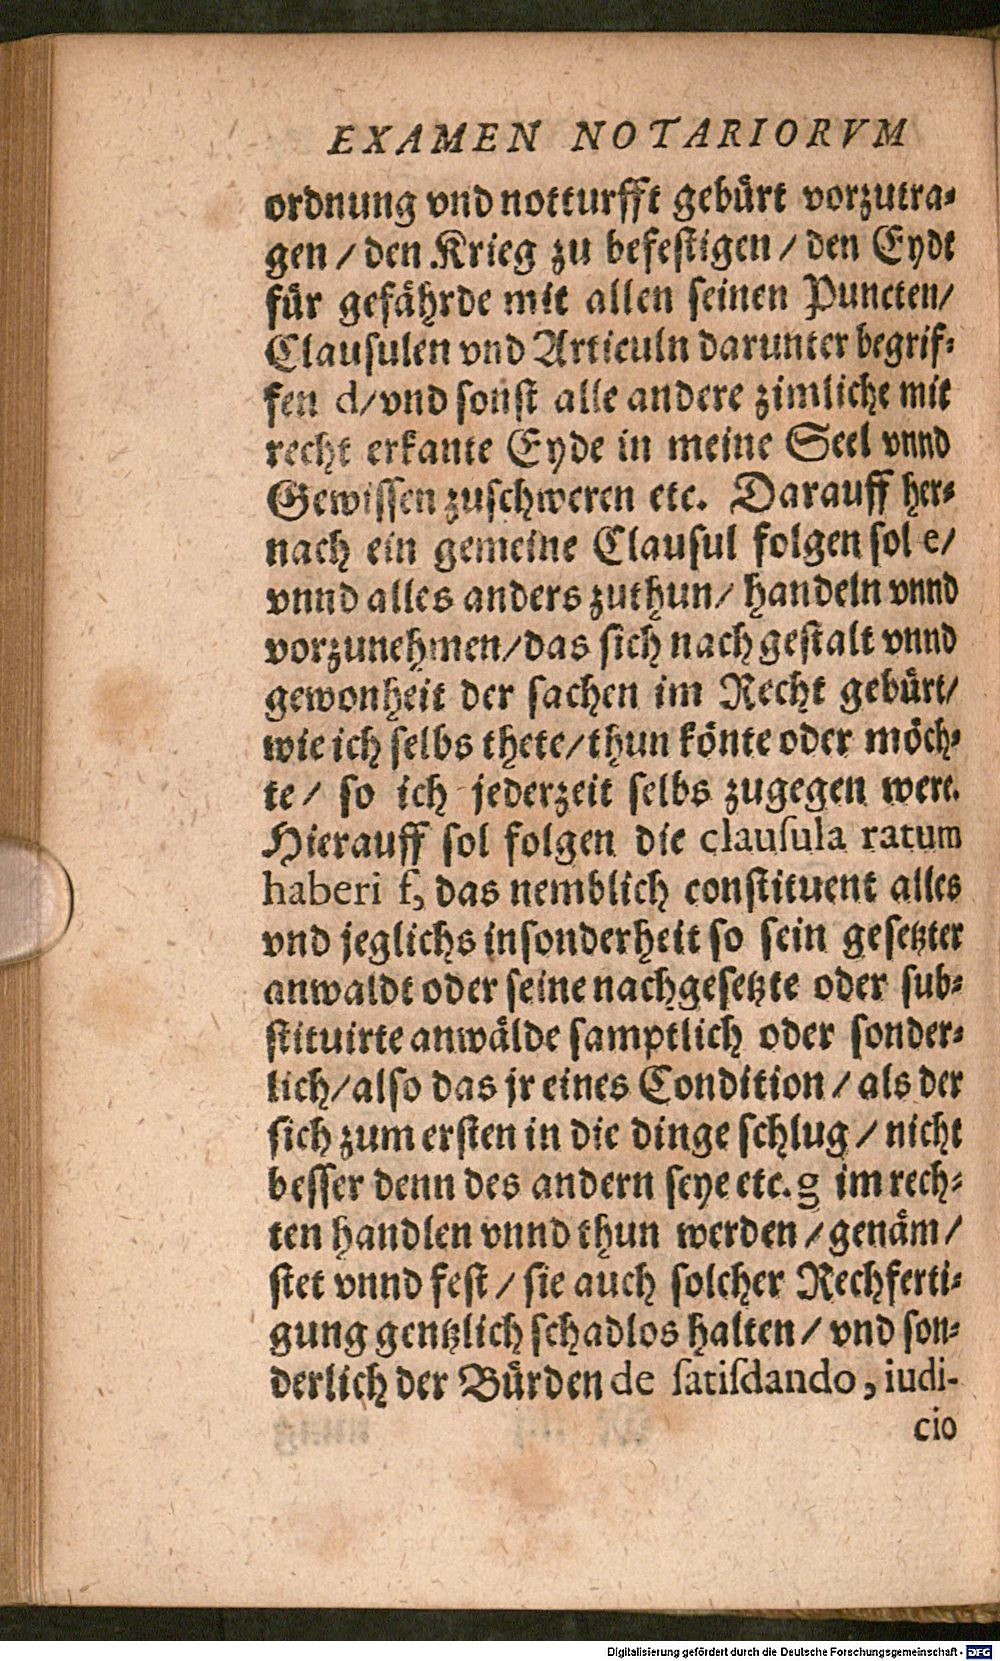 EXAMEN NOTARIORVM
ordnung vnd notturfft gebürt vorzutra⸗
gen / den Krieg zu befestigen / den Eydt
für gefährde mit allen seinen Puncten/
Clausulen vnd Articuln darunter begrif⸗
fen d/vnd sonst alle andere zimliche mit
recht erkante Eyde in meine Seel vnnd
Gewissen zuschweren etc. Darauff her⸗
nach ein gemeine Clausul folgen sol e/
vnnd alles anders zuthun/ handeln vnnd
vorzunehmen/das sich nach gestalt vnnd
gewonheit der sachen im Recht gebürt/
wie ich selbs thete/thun könte oder möch⸗
te/ so ich jederzeit selbs zugegen were.
Hierauff sol folgen die clausula ratum
haberi f, das nemblich constituent alles
vnd jeglichs insonderheit so sein gesetzter
anwaldt oder seine nachgesetzte oder sub⸗
stituirte anwälde samptlich oder sonder⸗
lich/also das jr eines Condition / als der
sich zum ersten in die dinge schlug / nicht
besser denn des andern seye etc. g im rech⸗
ten handlen vnnd thun werden / genäm /
stet vnnd fest / sie auch solcher Rechferti⸗
gung gentzlich schadlos halten / vnd son⸗
derlich der Bürden de satisdando, iudi-
cio
Digitalisierung gefördert durch die Deutsche Forschungsgemeinschaft - DFG